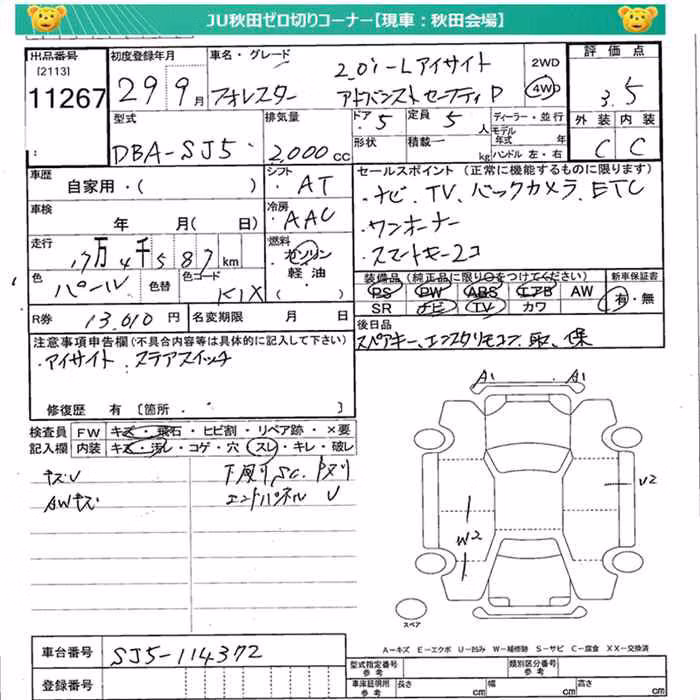 JU秋田ゼロ切りコーナー【現車：秋田会場】
出品番号 初度登録年月 車名・グレード 2WD 評価点
[2113]
11267 29 9月 フォレスター 2.0i-Lアイサイト アドバンストセーフティP 4WD 3.5
型式 排気量 ドア 5 定員 5人 ディーラー・並行 外装 内装
DBA-SJ5 2,000cc 形状 積載 kg モデル年式 年 ハンドル 左・右 C C
車歴 シフト セールスポイント（正常に機能するものに限ります）
自家用・( ) AT ・ナビ、TV、バックカメラ、ETC
車検 冷房 ・ワンオーナー
年 月( 日) AAC ・スマートキー2コ
走行 燃料
17万4千587km ガソリン
軽油 装備品（純正品に限り○をつけてください） 新車保証書
色 色替 色コード PS PW ABS エアB AW 有・無
パール K1X SR ナビ TV カワ
R券 13,010円 名変期限 月 日 後日品
スペアキー、エンスタリモコン、取、保
注意事項申告欄（不具合内容等は具体的に記入して下さい）
・アイサイト、ステアスイッチ
修復歴 有 [箇所・ ]
検査員 FW キズ・飛石・ヒビ割・リペア跡・×要
記入欄 内装 キズ・汚レ・コゲ・穴 スレ・キレ・破レ
キズU
AWキズ エンドパネル U
A1 A1
U2
W2
スペア
A－キズ E－エクボ U－凹み W－補修跡 S－サビ C－腐食 XX－交換済
車台番号 SJ5-114372
登録番号
型式指定番号 参考 類別区分番号 参考
車庫証明用 参考 長さ cm 幅 cm 高さ cm